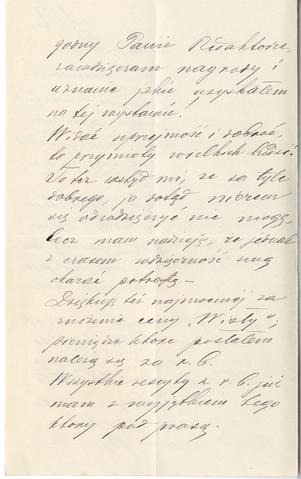 godny Panie Redaktorze,
zawdzięczam nagrody i
uznanie jakie uzyskałem
na tej wystawie.
Widać uprzejmość i dobroć,
to przymioty wielkich ludzi!
To też wstyd mi, że za tyle
dobrego, ja dotąd niczem
się odwdzięczyć nie mogę,
lecz mam nadzieję, że jednak
z czasem wdzięczność swą
okazać potrafię —
Dziękuję też najmocniej za
zniżenie ceny „Wisły";
pieniądze które posłałem
należą się za r. b.
Wszystkie zeszyty z r. b. już
mam z wyjątkiem tego
który pod prasą.